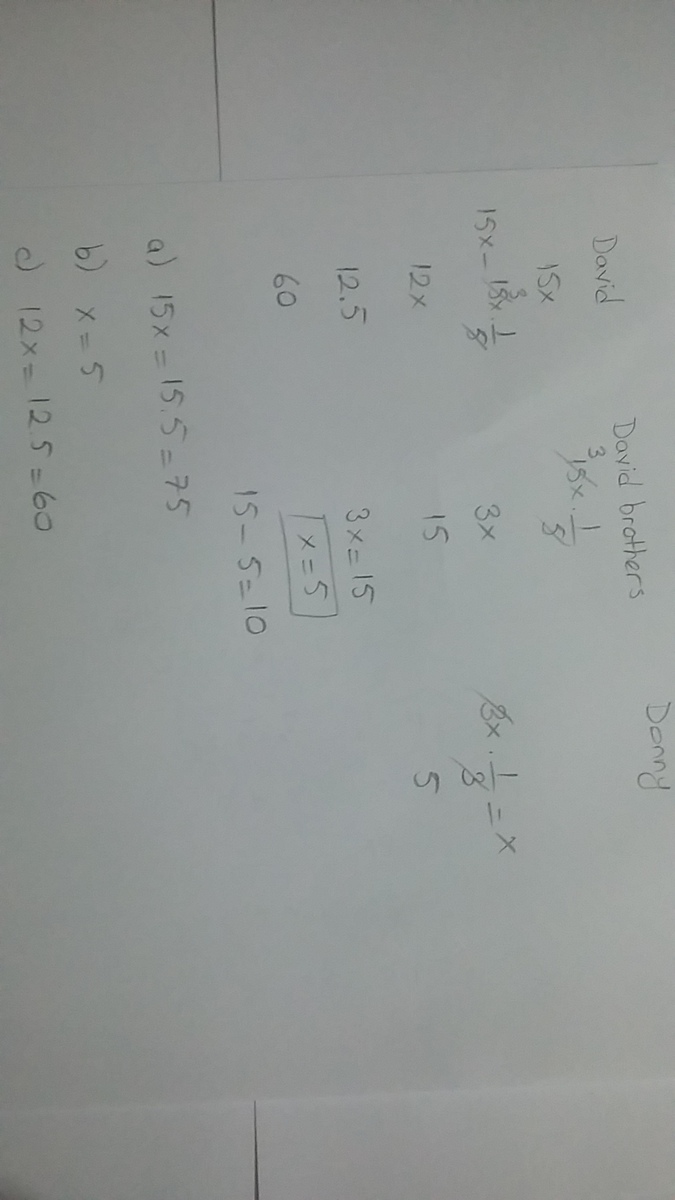 David David brothers Donny
15x 15x · 1/5 3
15x - 15x · 1/5 3 3x 3x · 1/3 = x
12x 15 5
12.5 3x = 15
60 x = 5
15 - 5 = 10
a) 15x = 15.5 = 75
b) x = 5
c) 12x = 12.5 = 60